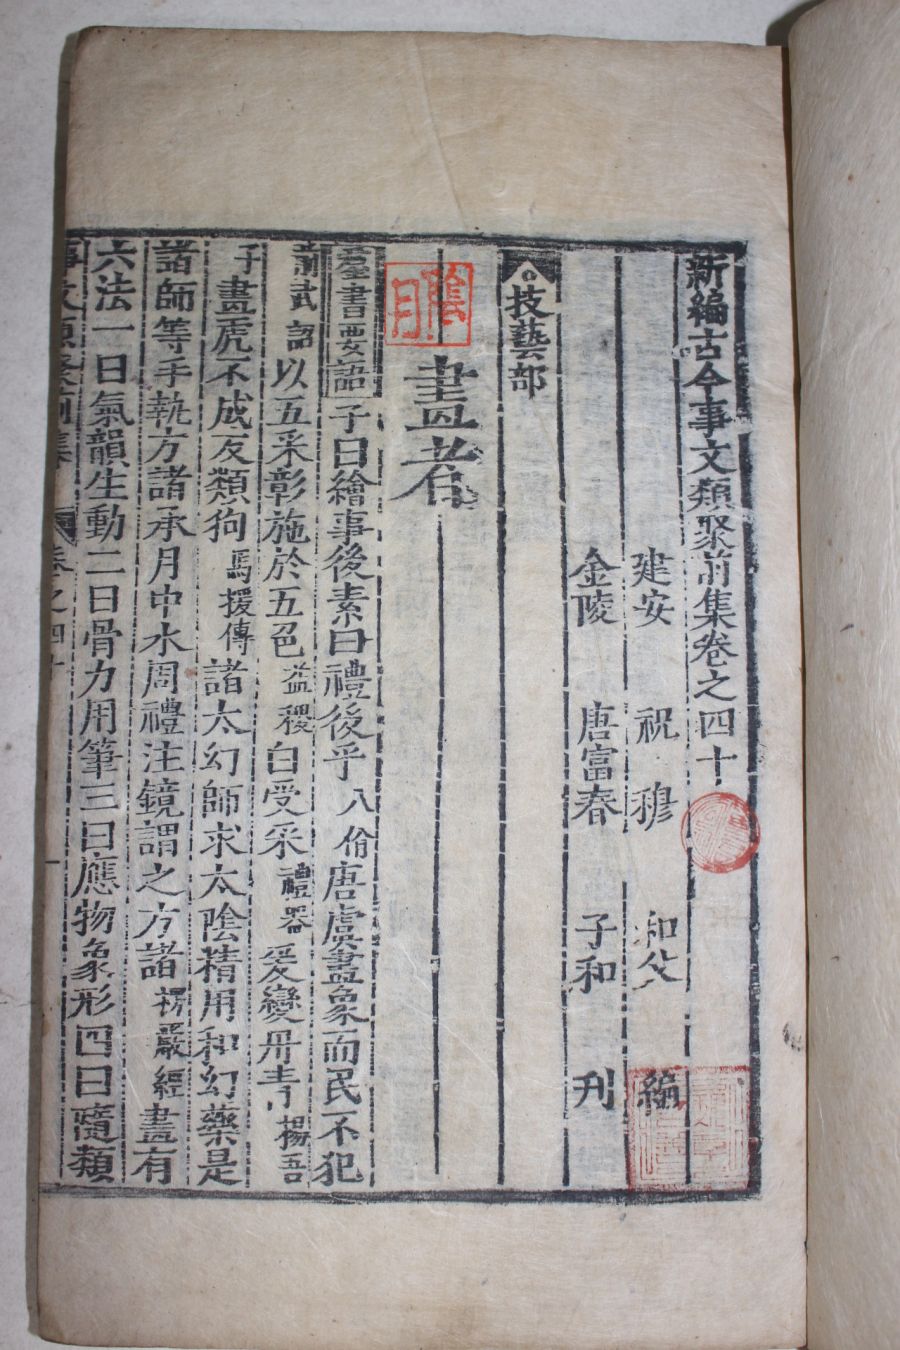 新編古今事文類聚前集卷之四十
建安 祝 穆 和父 編
金陵 唐富春 子和 刋
技藝部
畫者
羣書要語 子曰繪事後素曰禮後乎 八佾 唐虞畫象而民不犯
以五采彰施於五色 益稷 白受采 禮器 丹青 揚吾
子 畫虎不成反類狗 馬援傳 諸太幻師求太陰精用和幻藥是
諸師等手執方諸承月中水周禮注鏡謂之方諸 楞嚴經 畫有
六法一曰氣韻生動二曰骨力用筆三曰應物象形四曰隨類
事文類聚前集 卷之四十